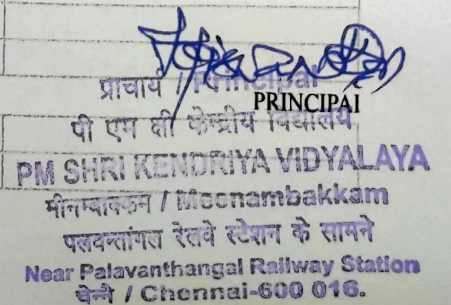 प्राचार्य / Principal
PRINCIPAL
पी एम श्री केन्द्रीय विद्यालय
PM SHRI KENDRIYA VIDYALAYA
मीनम्बाक्कम / Meenambakkam
पलवन्तांगल रेलवे स्टेशन के सामने
Near Palavanthangal Railway Station
चेन्नै / Chennai-600 016.